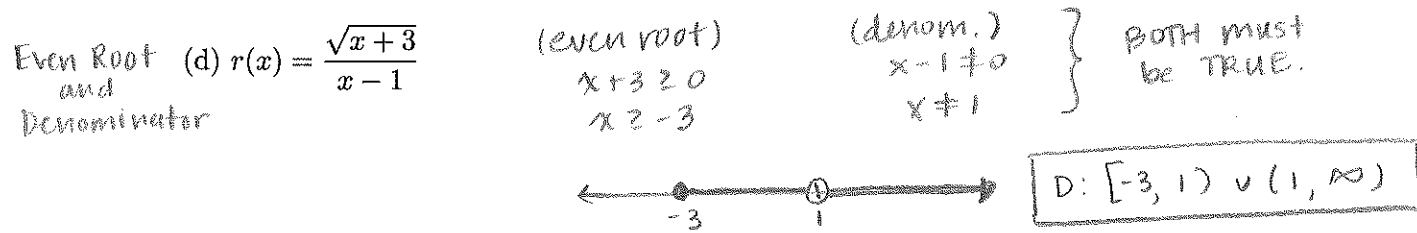 Even Root (d) r(x) = √(x + 3) / (x − 1)
and
Denominator
(even root)
x + 3 ≥ 0
x ≥ -3
(denom.)
x - 1 ≠ 0
x ≠ 1
BOTH must
be TRUE.
-3 1
D: [-3, 1) ∪ (1, ∞)